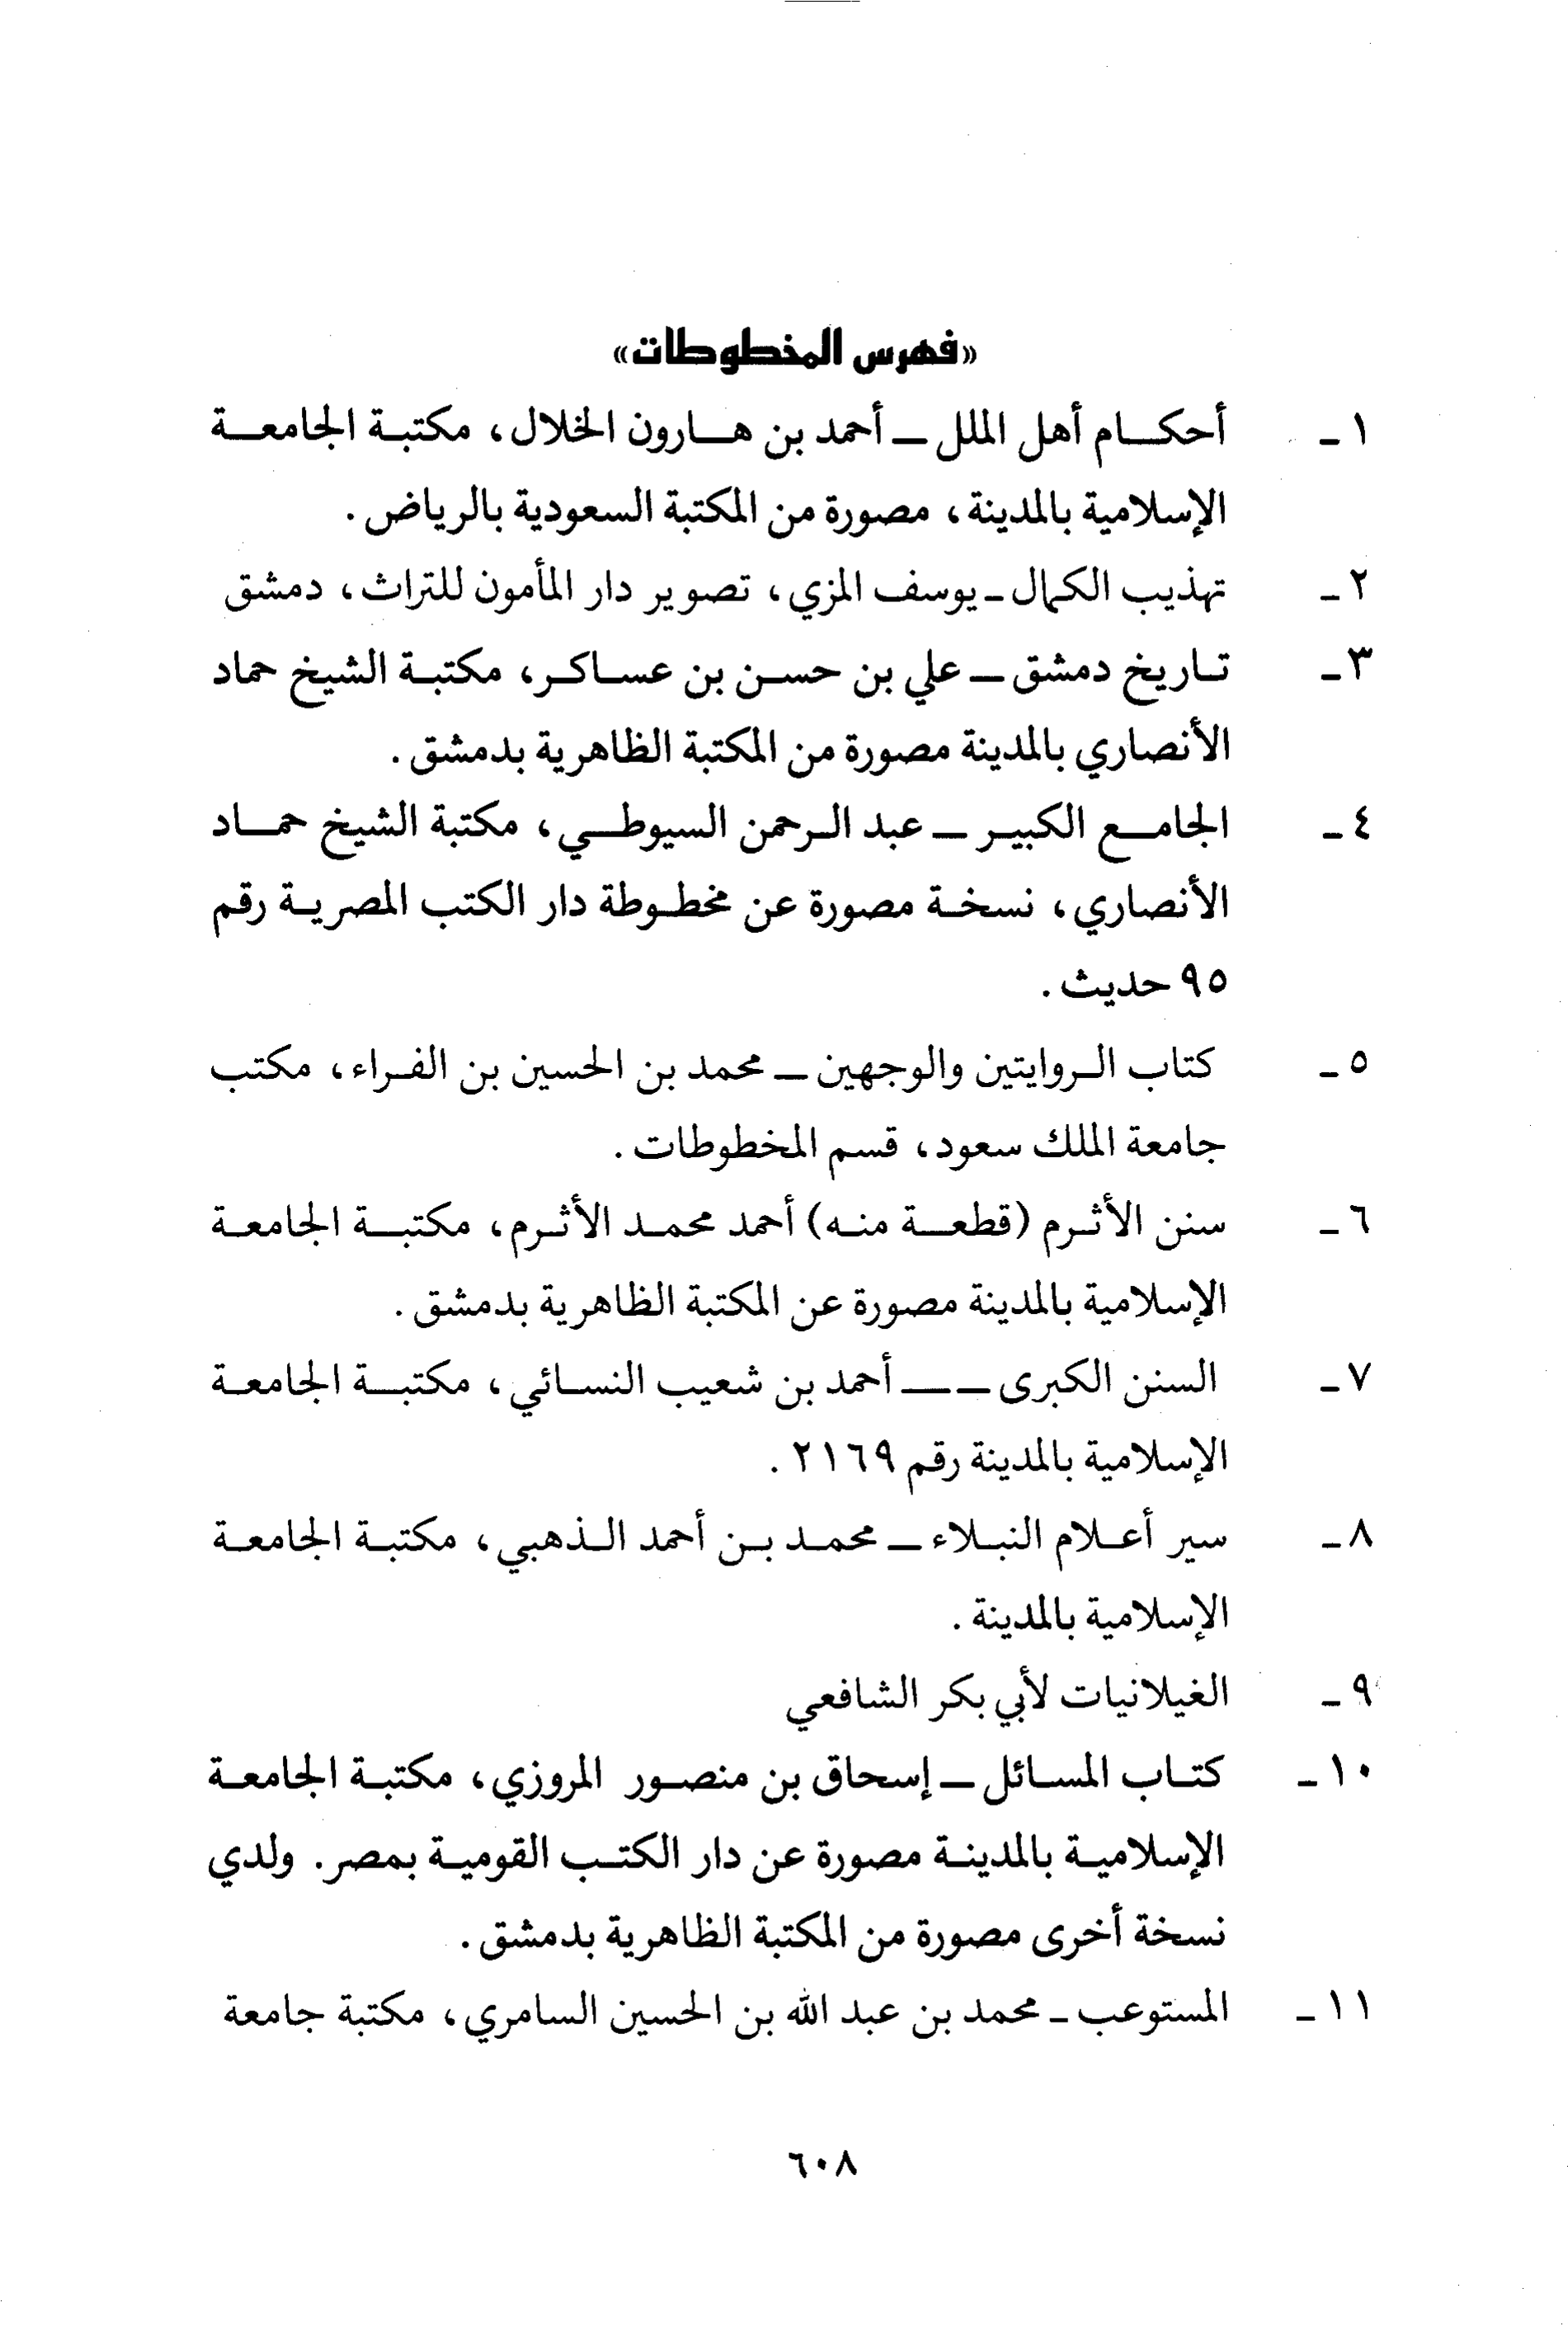 «فهرس المخطوطات»
١ - أحكام أهل الملل - أحمد بن هارون الخلال، مكتبة الجامعة
الإسلامية بالمدينة، مصورة من المكتبة السعودية بالرياض.
٢ - تهذيب الكمال - يوسف المزي، تصوير دار المأمون للتراث، دمشق
٣ - تاريخ دمشق - علي بن حسن بن عساكر، مكتبة الشيخ حماد
الأنصاري بالمدينة مصورة من المكتبة الظاهرية بدمشق.
٤ - الجامع الكبير - عبد الرحمن السيوطي، مكتبة الشيخ حماد
الأنصاري، نسخة مصورة عن مخطوطة دار الكتب المصرية رقم
٩٥ حديث.
٥ - كتاب الروايتين والوجهين - محمد بن الحسين بن الفراء، مكتب
جامعة الملك سعود، قسم المخطوطات.
٦ - سنن الأثرم (قطعة منه) أحمد محمد الأثرم، مكتبة الجامعة
الإسلامية بالمدينة مصورة عن المكتبة الظاهرية بدمشق.
٧ - السنن الكبرى -- أحمد بن شعيب النسائي، مكتبة الجامعة
الإسلامية بالمدينة رقم ٢١٦٩.
٨ - سير أعلام النبلاء - محمد بن أحمد الذهبي، مكتبة الجامعة
الإسلامية بالمدينة.
٩ - الغيلانيات لأبي بكر الشافعي
١٠ - كتاب المسائل - إسحاق بن منصور المروزي، مكتبة الجامعة
الإسلامية بالمدينة مصورة عن دار الكتب القومية بمصر. ولدي
نسخة أخرى مصورة من المكتبة الظاهرية بدمشق.
١١ - المستوعب - محمد بن عبد الله بن الحسين السامري، مكتبة جامعة
٦٠٨